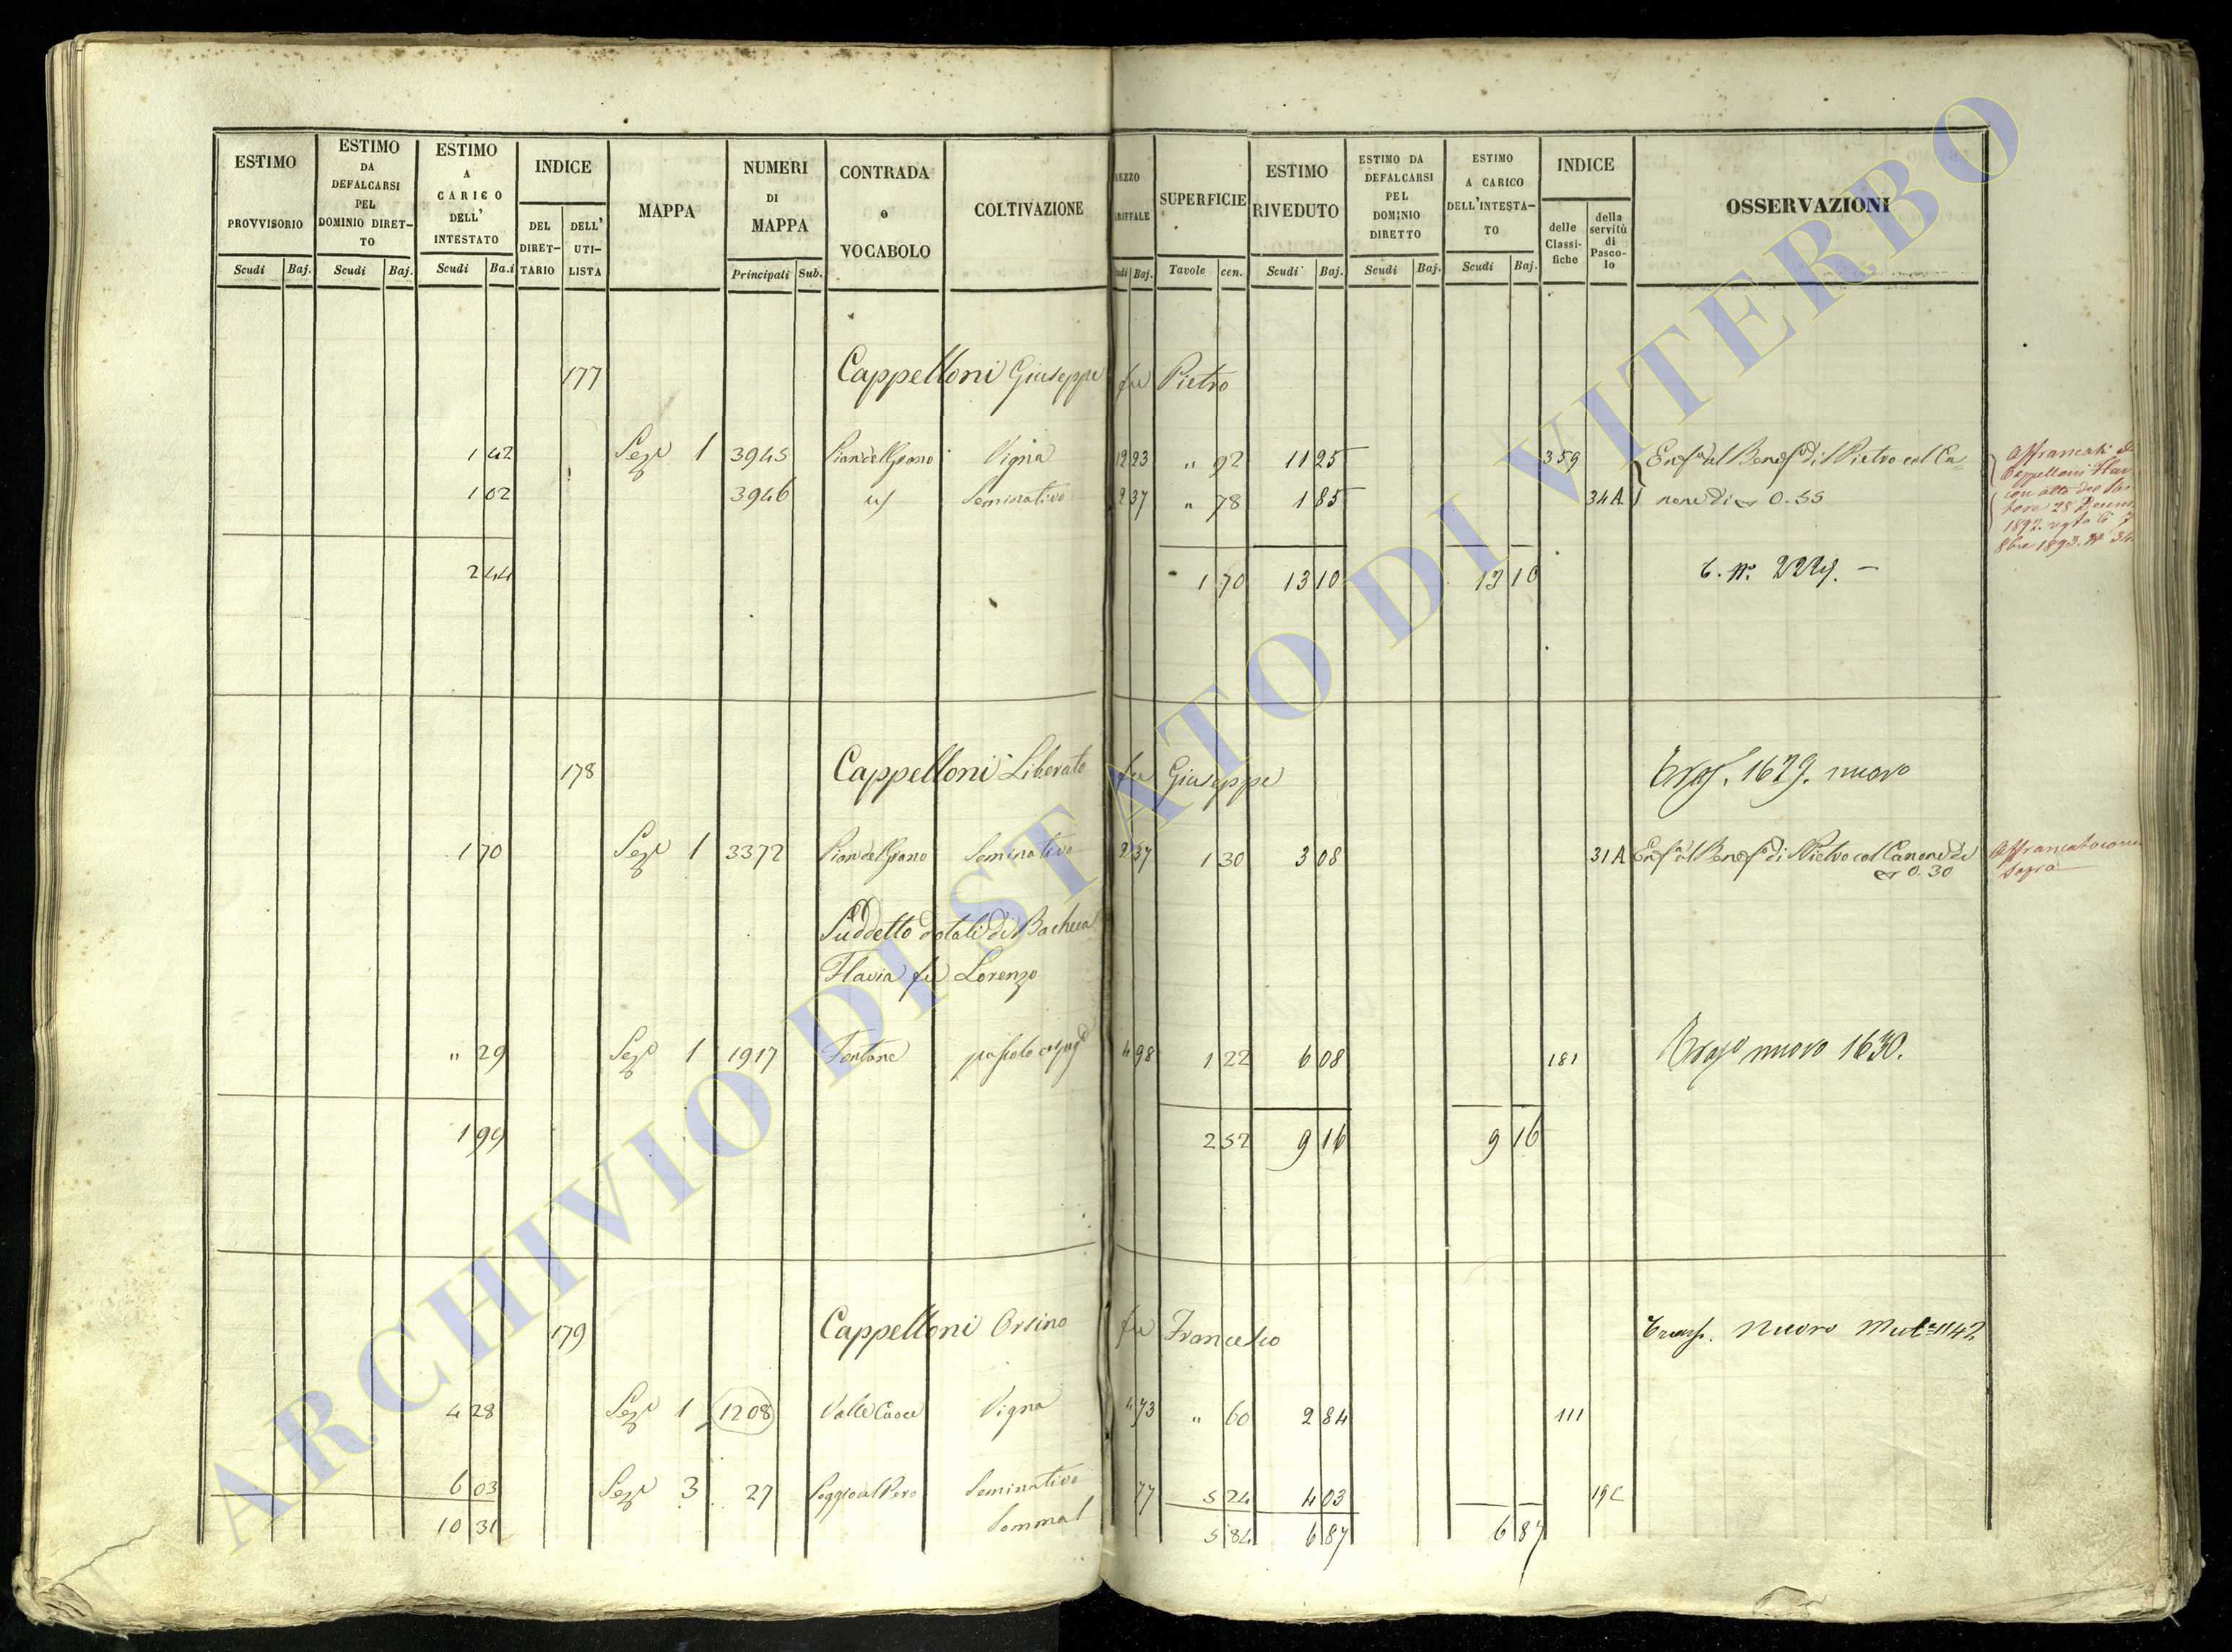 ESTIMO PROVVISORIO Scudi Baj.
ESTIMO DA DEFALCARSI PEL DOMINIO DIRET-TO Scudi Baj.
ESTIMO A CARICO DELL' INTESTATO Scudi Ba.i
INDICE DEL DIRET-TARIO DELL' UTI-LISTA
MAPPA
NUMERI DI MAPPA Principali Sub.
CONTRADA o VOCABOLO
COLTIVAZIONE
SUPERFICIE Tavole cen.
ESTIMO RIVEDUTO Scudi Baj.
ESTIMO DA DEFALCARSI PEL DOMINIO DIRETTO Scudi Baj.
ESTIMO A CARICO DELL'INTESTA-TO Scudi Baj.
INDICE delle Classi-fiche della servitù di Pasco-lo
OSSERVAZIONI
177 Cappelloni Giuseppe fu Pietro
1 42 Sez.e 1 3945 Pian del Grano Vigna 12 23 " 92 11 25 359 Enf.a al Benef.o di S Pietro col Ca=
1 02 3946 Seminativo 2 37 " 78 1 85 34A none di 0.55
2 44 1 70 13 10 13 10
Affrancati
Cappelloni
con atto del
28
1892
1893. N 34
178 Cappelloni Liberato fu Giuseppe 1629. nuovo
1 70 Sez.e 1 3372 Pian del Grano Seminativo 2 37 1 30 3 08 31A Enf.a al Benef.o di S Pietro col Canone di
0.30
Affrancato come
sopra
Suddetto dotali di
Flavia fu Lorenzo
" 29 Sez.e 1 1917 Fontane pascolo 4 98 1 22 6 08 181 nuovo 1630.
1 99 2 52 9 16 9 16
179 Cappelloni Orsino fu Francesco Trasp. Nuovo 1142
4 28 Sez.e 1 1208 Valle Vigna 4 73 " 60 2 84 111
6 03 Sez.e 3 27 Poggio del Pero Seminativo 77 5 24 4 03 19C
10 31 5 84 6 87 6 87
ARCHIVIO DI STATO DI VITERBO